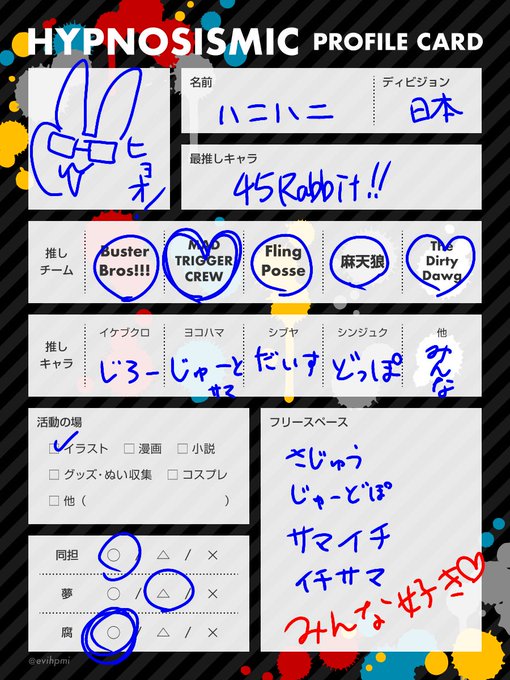 HYPNOSISMIC PROFILE CARD
ヒョオン
名前
ハニハニ
ディビジョン
日本
最推しキャラ
45Rabbit!!
推しチーム
Buster Bros!!!
MAD TRIGGER CREW
Fling Posse
麻天狼
The Dirty Dawg
推しキャラ
イケブクロ
じろー
ヨコハマ
じゅーとサマ
シブヤ
だいす
シンジュク
どっぽ
他
みんな
活動の場
✓イラスト □漫画 □小説
□グッズ・ぬい収集 □コスプレ
□他( )
同担 ○ / △ / ×
夢 ○ / △ / ×
腐 ○ / △ / ×
フリースペース
さじゅう
じゅーどぽ
サマイチ
イチサマ
みんな好き♡
@evihpmi